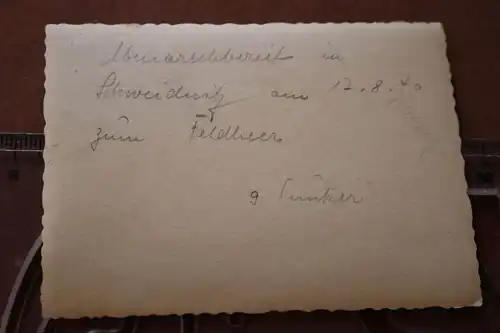 Abmarschbereit in
Schweidnitz am 12.8.40
zum Feldheer
9 Funker